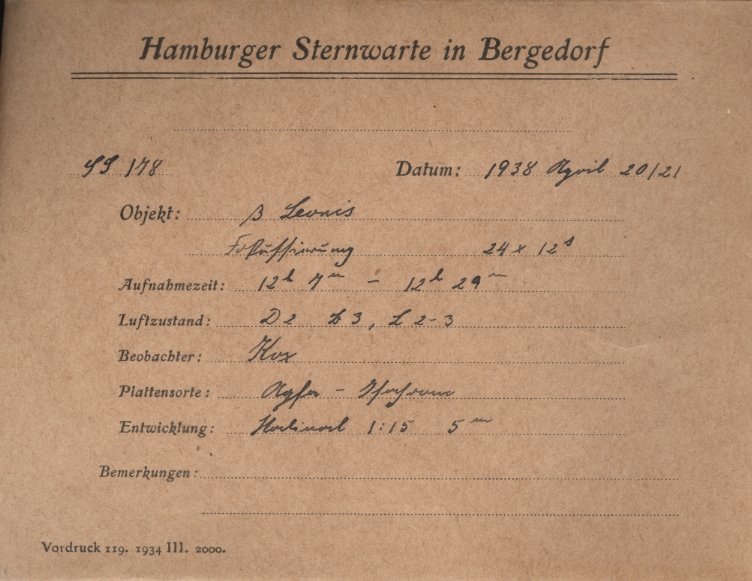 Hamburger Sternwarte in Bergedorf
SS 178 Datum: 1938 April 20/21
Objekt: β Leonis
Fokussierung 24 x 12ˢ
Aufnahmezeit: 12ʰ 7ᵐ – 12ʰ 29ᵐ
Luftzustand: D2 3, L 2-3
Beobachter: Kox
Plattensorte: Agfa - Isochrom
Entwicklung: Rodinal 1:15 5ᵐ
Bemerkungen:
Vordruck 119. 1934 III. 2000.